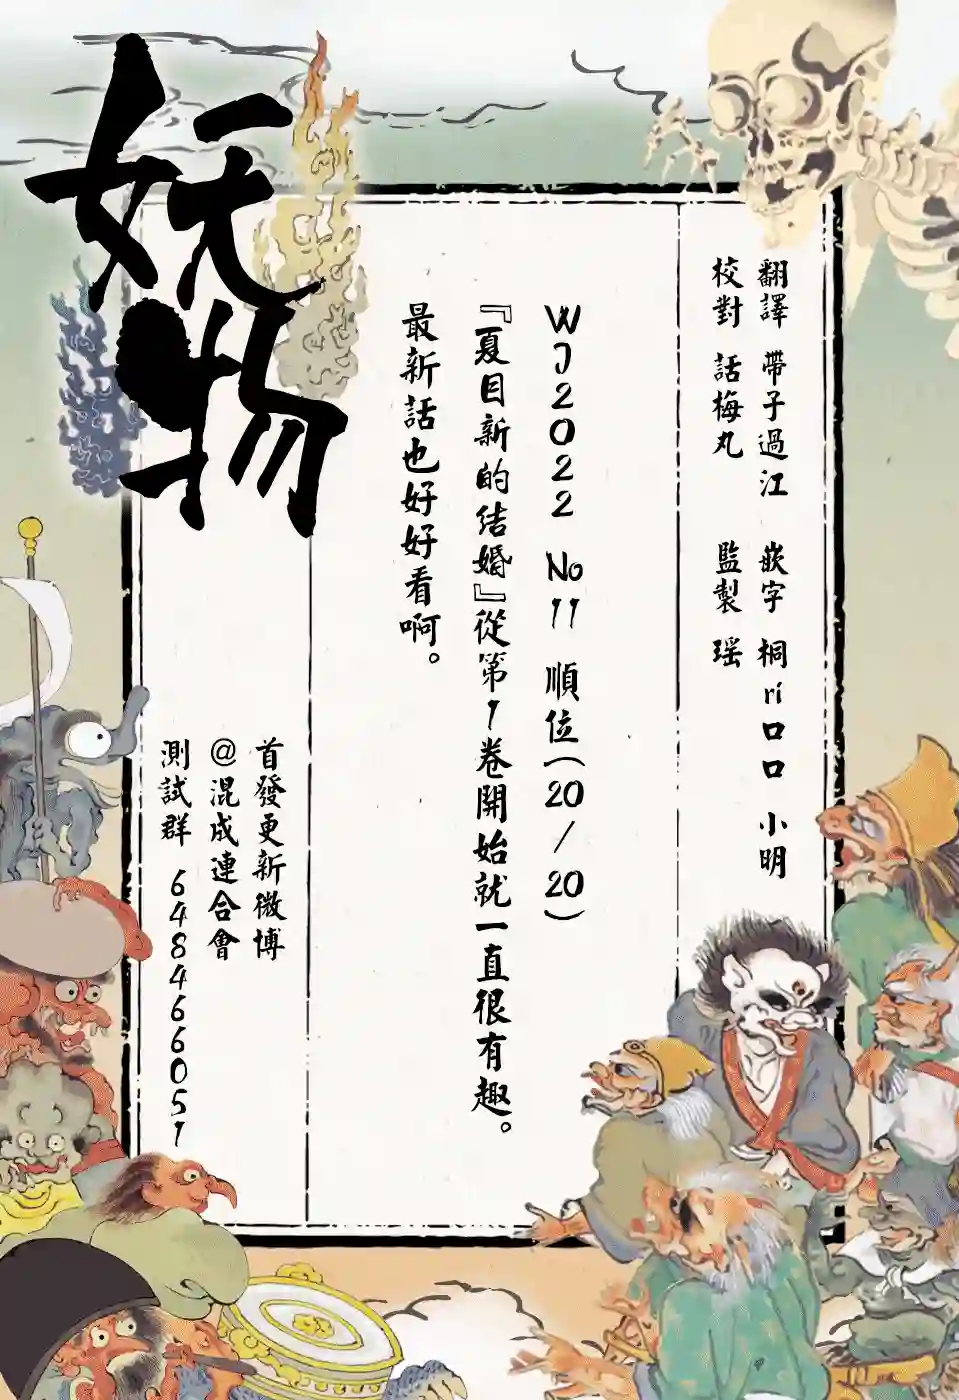 妖物
翻譯 帶子過江 嵌字 桐ri口口 小明
校對 話梅丸 監製 瑶
WJ2022 No11 順位(20/20)
『夏目新的結婚』從第1卷開始就一直很有趣。
最新話也好好看啊。
首發更新微博
@混成連合會
測試群 648466051